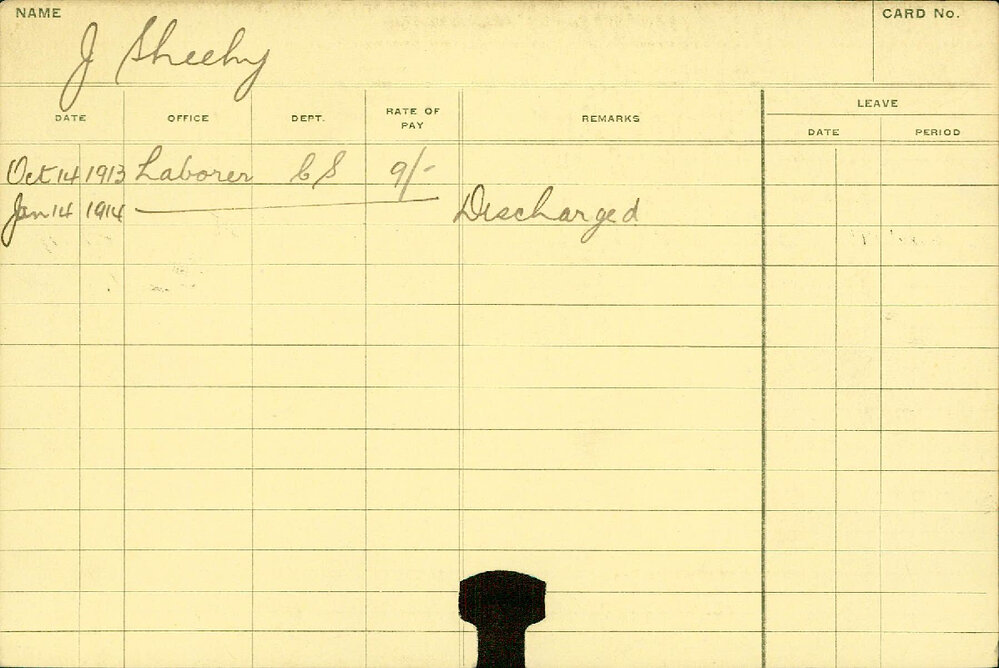 NAME CARD No.
J Sheehy
DATE OFFICE DEPT. RATE OF PAY REMARKS LEAVE
DATE PERIOD
Oct 14 1913 Laborer CS 9/-
Jan 14 1914 Discharged